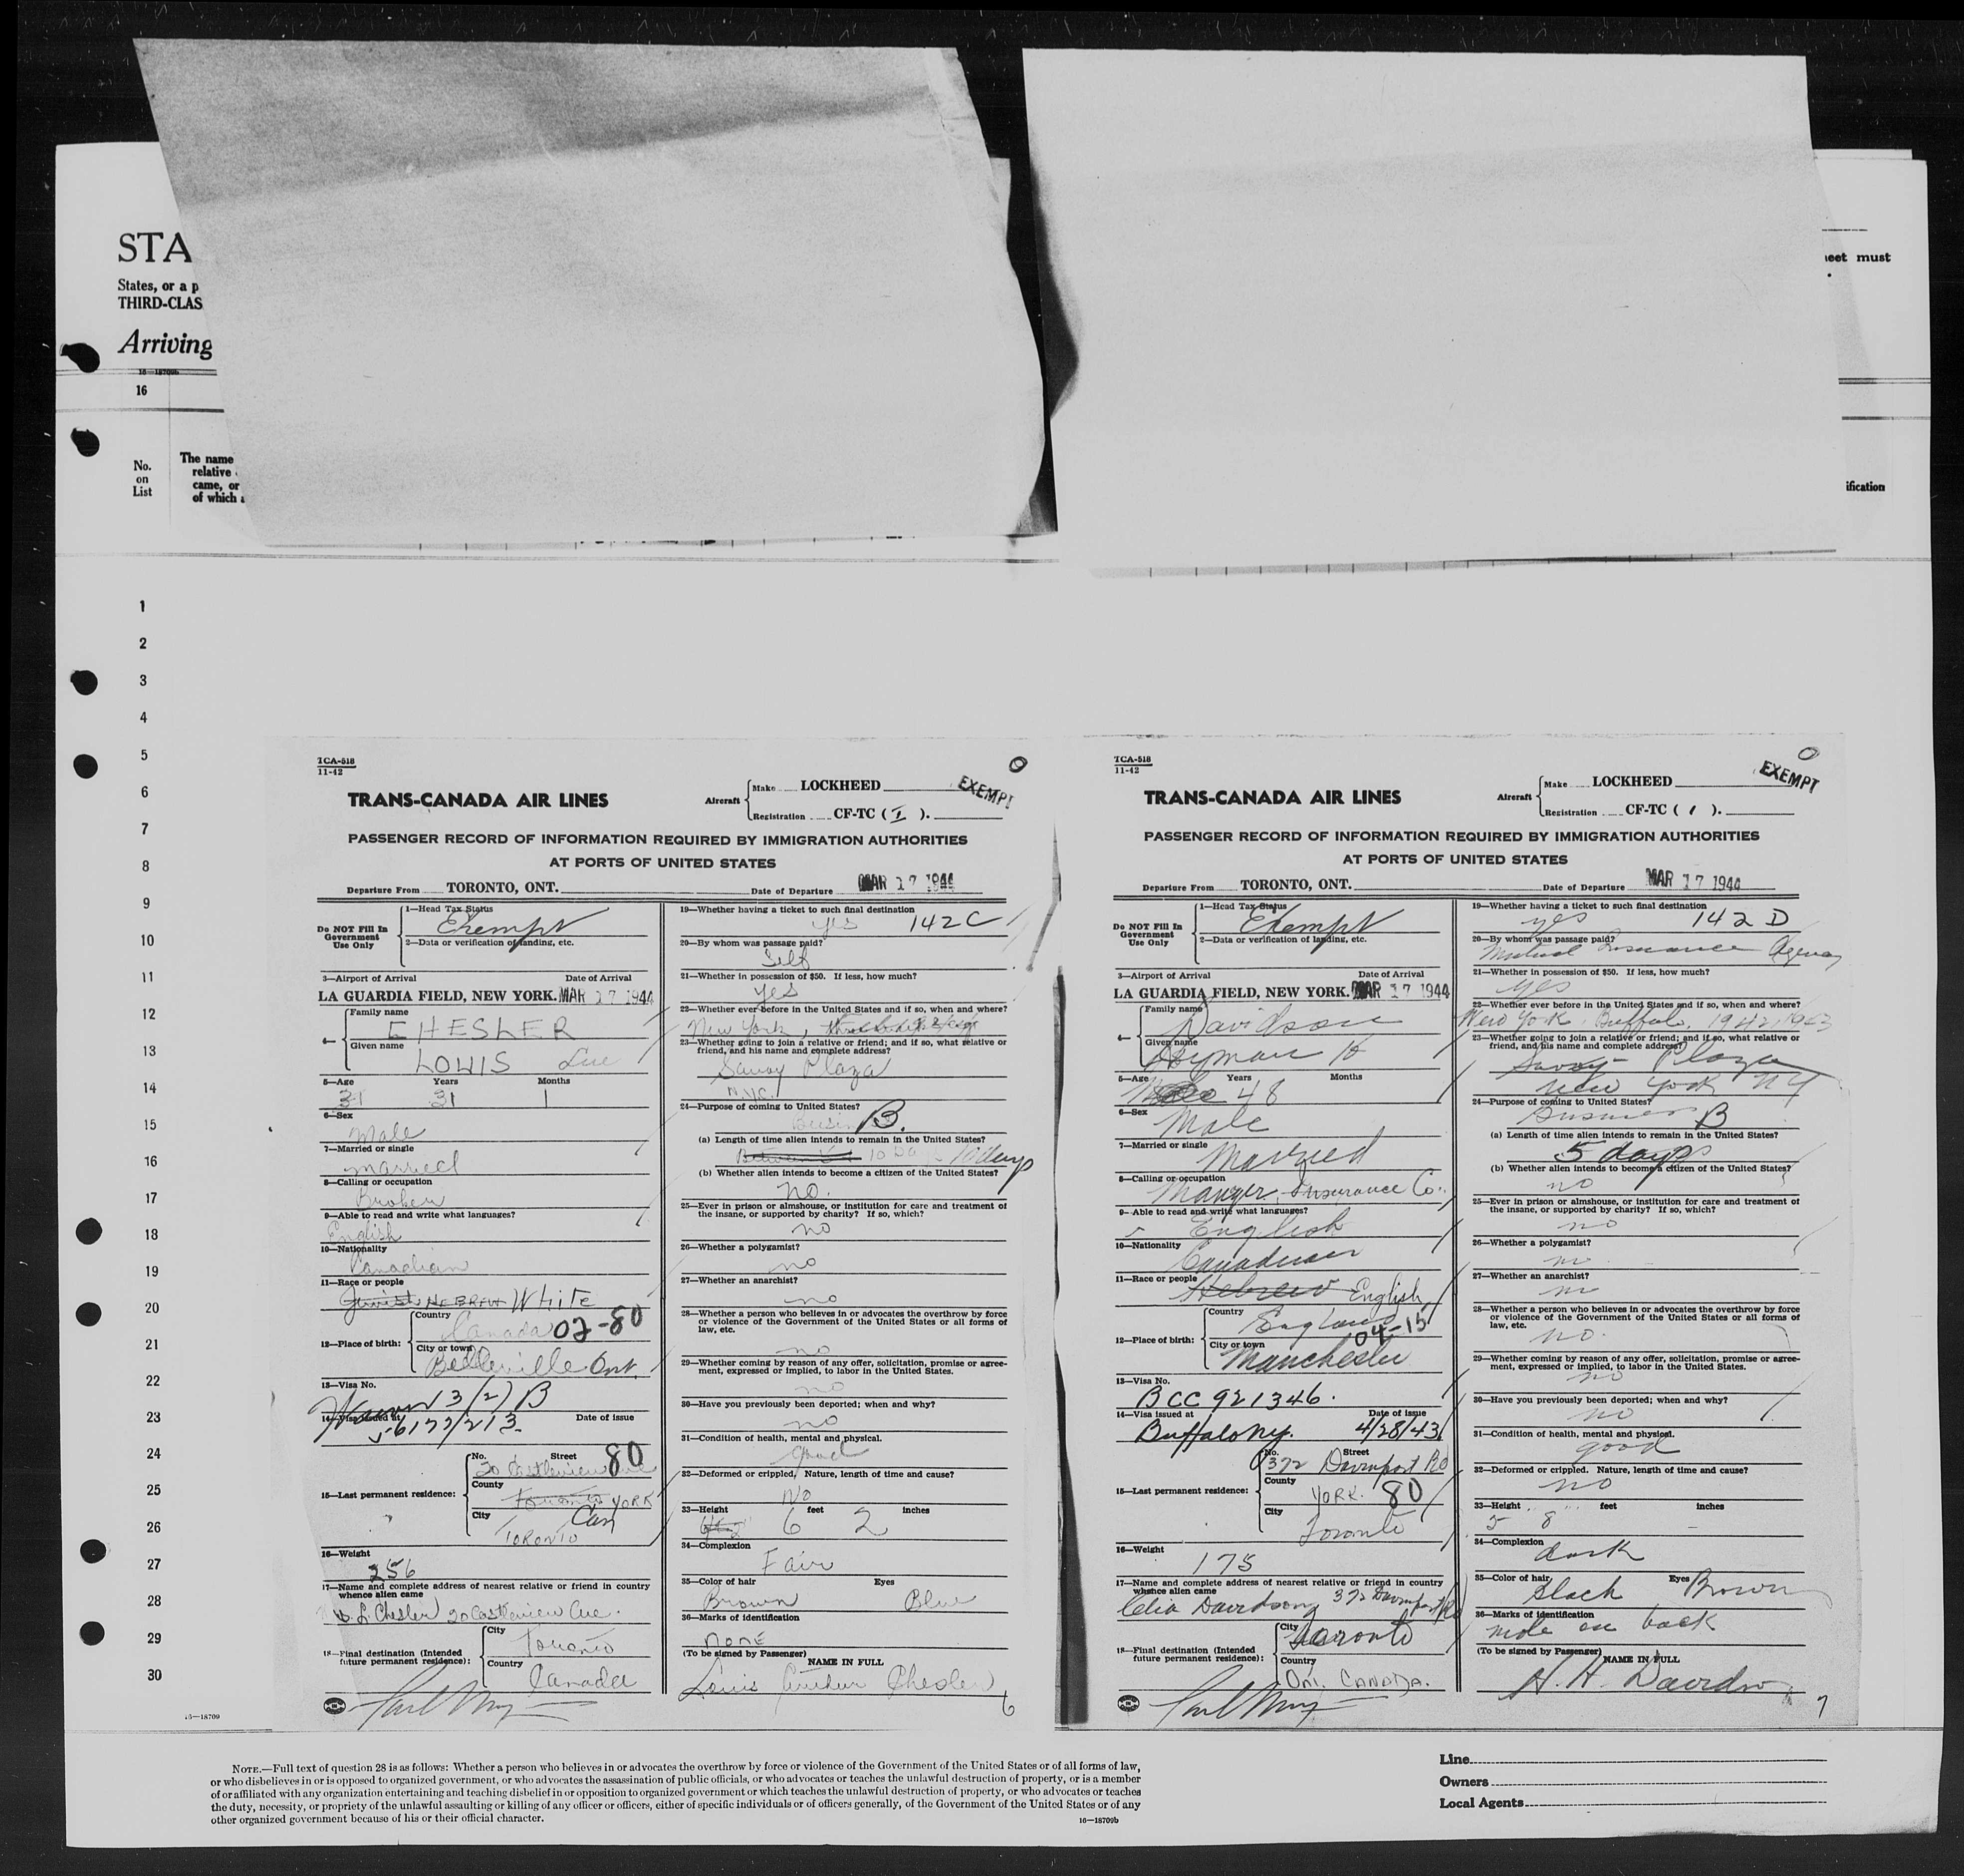 STA
States, or a p
THIRD-CLAS
Arriving
16—18709b
16
No.
on
List
The name
relative
came, or
of which a
eet must
ification
1
2
3
4
5
6
7
8
9
10
11
12
13
14
15
16
17
18
19
20
21
22
23
24
25
26
27
28
29
30
16—18709
TCA-518
11-42
TRANS-CANADA AIR LINES
Aircraft
Make LOCKHEED
Registration CF-TC ( I ).
EXEMPT
PASSENGER RECORD OF INFORMATION REQUIRED BY IMMIGRATION AUTHORITIES
AT PORTS OF UNITED STATES
Departure From TORONTO, ONT. Date of Departure MAR 17 1944
Do NOT Fill In
Government
Use Only
1—Head Tax Status
Exempt
2—Data or verification of landing, etc.
3—Airport of Arrival Date of Arrival
LA GUARDIA FIELD, NEW YORK. MAR 17 1944
4—
Family name
CHESLER
Given name
LOUIS
5—Age Years Months
31 31 1
6—Sex
Male
7—Married or single
married
8—Calling or occupation
Broker
9—Able to read and write what languages?
English
10—Nationality
Canadian
11—Race or people
Jewish HEBREW White
12—Place of birth:
Country
Canada 02-80
City or town
Belleville Ont.
13—Visa No.
13/27 B
14—Visa issued at Date of issue
56177/213.
15—Last permanent residence:
No. Street
20 Castleview Ave 80
County
Toronto YORK
City Can
TORONTO
16—Weight
256
17—Name and complete address of nearest relative or friend in country
whence alien came
L. Chesler 20 Castleview Ave.
18—Final destination (Intended
future permanent residence):
City
Toronto
Country
Canada
19—Whether having a ticket to such final destination
yes 142 C
20—By whom was passage paid?
Self
21—Whether in possession of $50. If less, how much?
yes
22—Whether ever before in the United States and if so, when and where?
New York,
23—Whether going to join a relative or friend; and if so, what relative or
friend, and his name and complete address?
Savoy Plaza
N.Y.C.
24—Purpose of coming to United States?
B.
(a) Length of time alien intends to remain in the United States?
10 Da 10 days
(b) Whether alien intends to become a citizen of the United States?
no.
25—Ever in prison or almshouse, or institution for care and treatment of
the insane, or supported by charity? If so, which?
no
26—Whether a polygamist?
no
27—Whether an anarchist?
no
28—Whether a person who believes in or advocates the overthrow by force
or violence of the Government of the United States or all forms of
law, etc.
no
29—Whether coming by reason of any offer, solicitation, promise or agree-
ment, expressed or implied, to labor in the United States.
no
30—Have you previously been deported; when and why?
no
31—Condition of health, mental and physical.
good
32—Deformed or crippled, Nature, length of time and cause?
No
33—Height feet inches
6 2
34—Complexion
Fair
35—Color of hair Eyes
Brown Blue
36—Marks of identification
none
(To be signed by Passenger)
NAME IN FULL
Louis Arthur Chesler
6
TCA-518
11-42
TRANS-CANADA AIR LINES
Aircraft
Make LOCKHEED
Registration CF-TC ( 1 ).
EXEMPT
PASSENGER RECORD OF INFORMATION REQUIRED BY IMMIGRATION AUTHORITIES
AT PORTS OF UNITED STATES
Departure From TORONTO, ONT. Date of Departure MAR 17 1944
Do NOT Fill In
Government
Use Only
1—Head Tax Status
Exempt
2—Data or verification of landing, etc.
3—Airport of Arrival Date of Arrival
LA GUARDIA FIELD, NEW YORK. MAR 17 1944
4—
Family name
Davidson
Given name
Hyman H
5—Age Years Months
48
6—Sex
Male
7—Married or single
Married
8—Calling or occupation
Manger, Insurance Co.
9—Able to read and write what languages?
English
10—Nationality
Canadian
11—Race or people
Hebrew English
12—Place of birth:
Country
England
04-15
City or town
Manchester
13—Visa No.
BCC 921346.
14—Visa issued at Date of issue
Buffalo Ny. 4/28/43
15—Last permanent residence:
No. Street
372 Davenport Rd
County
YORK. 80
City
Toronto
16—Weight
175
17—Name and complete address of nearest relative or friend in country
whence alien came
Celia Davidson 372 Davenport Rd
18—Final destination (Intended
future permanent residence):
City
Toronto
Country
Ont. CANADA.
19—Whether having a ticket to such final destination
yes 142 D
20—By whom was passage paid?
Mutual Insurance Agency
21—Whether in possession of $50. If less, how much?
yes
22—Whether ever before in the United States and if so, when and where?
New York, Buffalo, 1942, 1943
23—Whether going to join a relative or friend; and if so, what relative or
friend, and his name and complete address?
Savoy Plaza
New York NY
24—Purpose of coming to United States?
Business B
(a) Length of time alien intends to remain in the United States?
5 days
(b) Whether alien intends to become a citizen of the United States?
no
25—Ever in prison or almshouse, or institution for care and treatment of
the insane, or supported by charity? If so, which?
no
26—Whether a polygamist?
no
27—Whether an anarchist?
no
28—Whether a person who believes in or advocates the overthrow by force
or violence of the Government of the United States or all forms of
law, etc.
no.
29—Whether coming by reason of any offer, solicitation, promise or agree-
ment, expressed or implied, to labor in the United States.
no
30—Have you previously been deported; when and why?
no
31—Condition of health, mental and physical.
good
32—Deformed or crippled. Nature, length of time and cause?
no
33—Height feet inches
5 8
34—Complexion
dark
35—Color of hair Eyes
black Brown
36—Marks of identification
mole on back
(To be signed by Passenger)
NAME IN FULL
H. H. Davidson
7
NOTE.—Full text of question 28 is as follows: Whether a person who believes in or advocates the overthrow by force or violence of the Government of the United States or of all forms of law,
or who disbelieves in or is opposed to organized government, or who advocates the assassination of public officials, or who advocates or teaches the unlawful destruction of property, or is a member
of or affiliated with any organization entertaining and teaching disbelief in or opposition to organized government or which teaches the unlawful destruction of property, or who advocates or teaches
the duty, necessity, or propriety of the unlawful assaulting or killing of any officer or officers, either of specific individuals or of officers generally, of the Government of the United States or of any
other organized government because of his or their official character.
16—18709b
Line
Owners
Local Agents